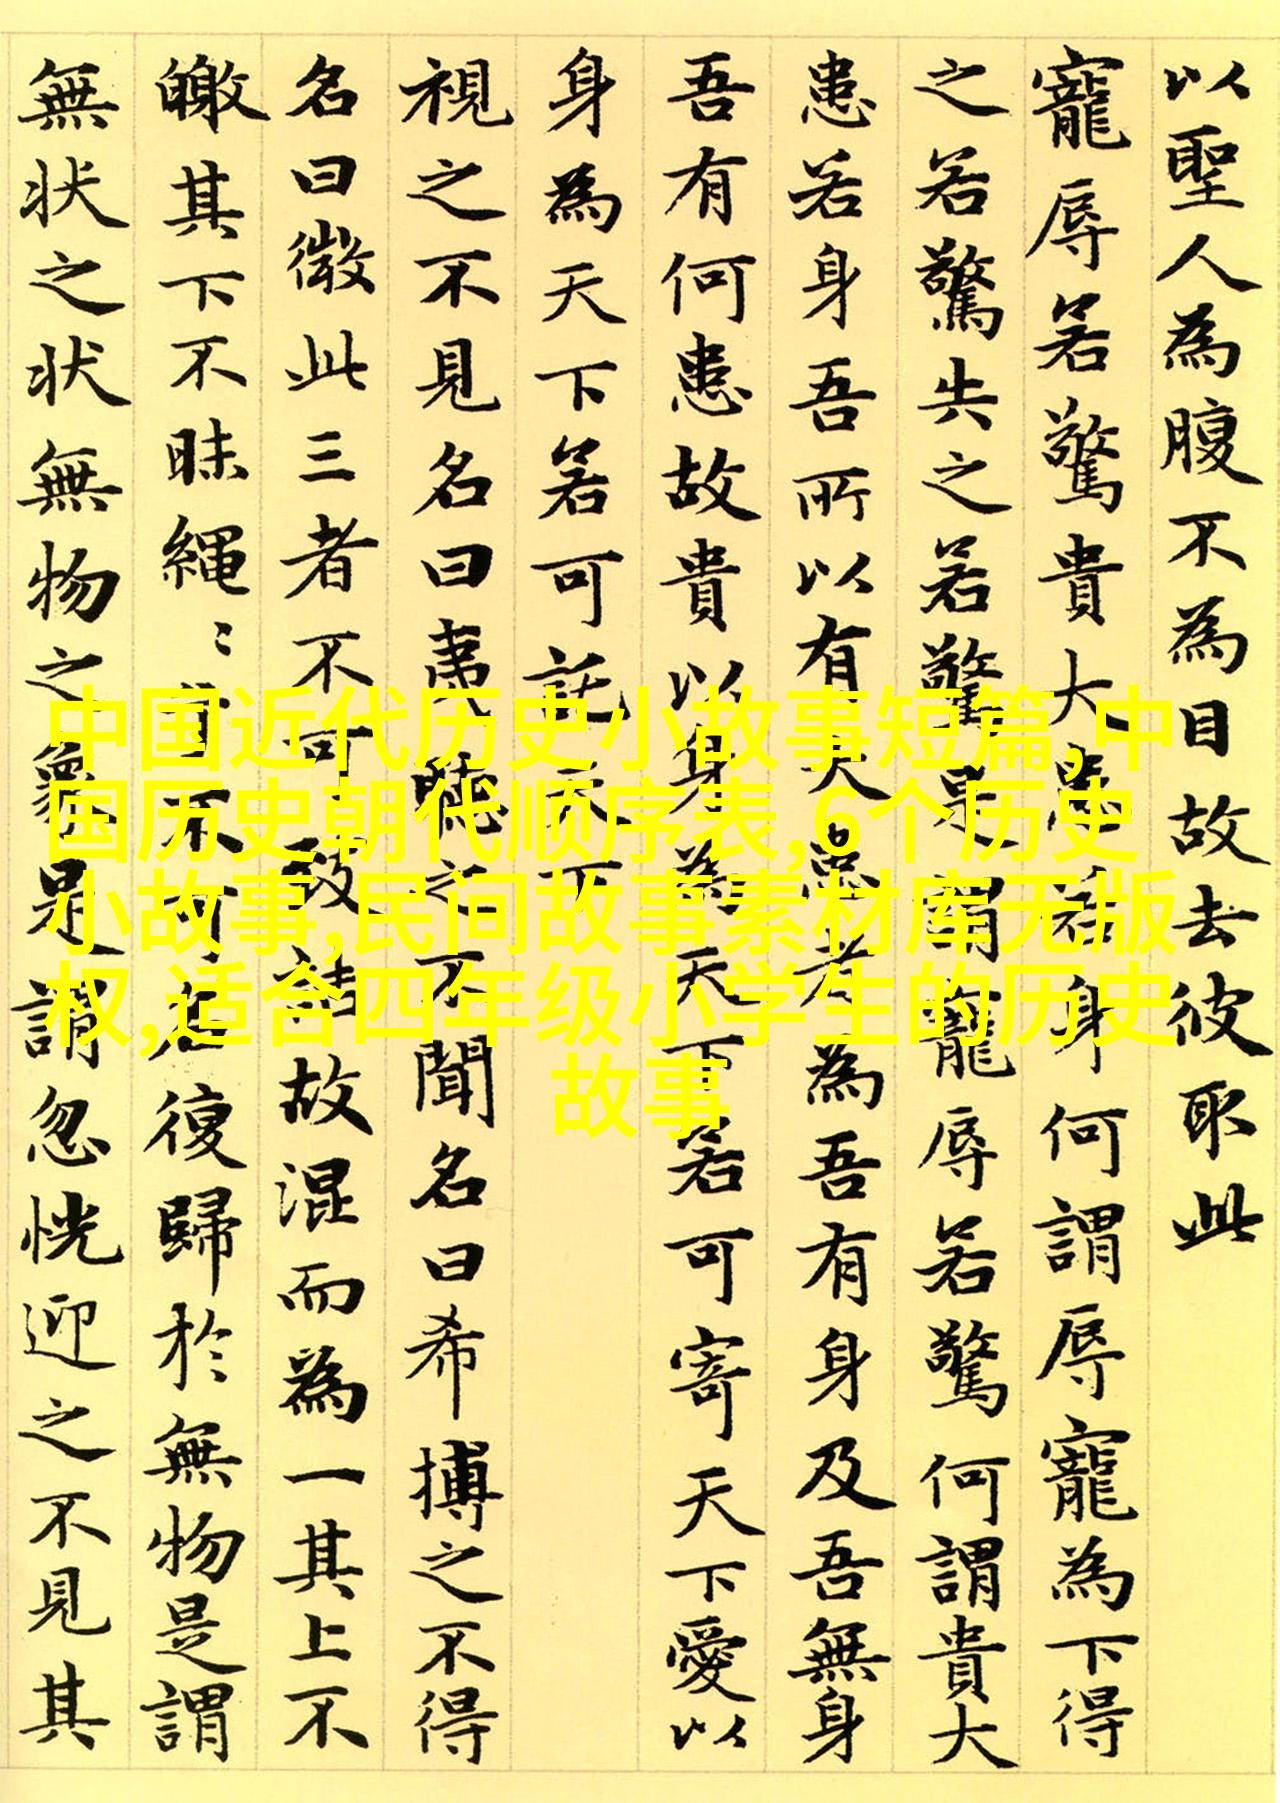 以聖人為腹不為目故去彼取此
寵辱若驚貴大患若身何謂辱寵為下得
之若驚失之若驚是謂寵辱若驚何謂貴大
患若身吾所以有大患者為吾有身及吾無身
吾有何患故貴以身為天下若可寄天下愛以
身為天下若可託天下
視之不見名曰夷聽之不聞名曰希搏之不得
名曰微此三者不可致詰故混而為一其上不
皦其下不昧繩〻不可名復歸於無物是謂
無狀之狀無物之象是謂忽恍迎之不見其
中国近代历史小故事短篇,中
国历史朝代顺序表,6个历史
小故事,民间故事素材库无版
权,适合四年级小学生的历史
故事